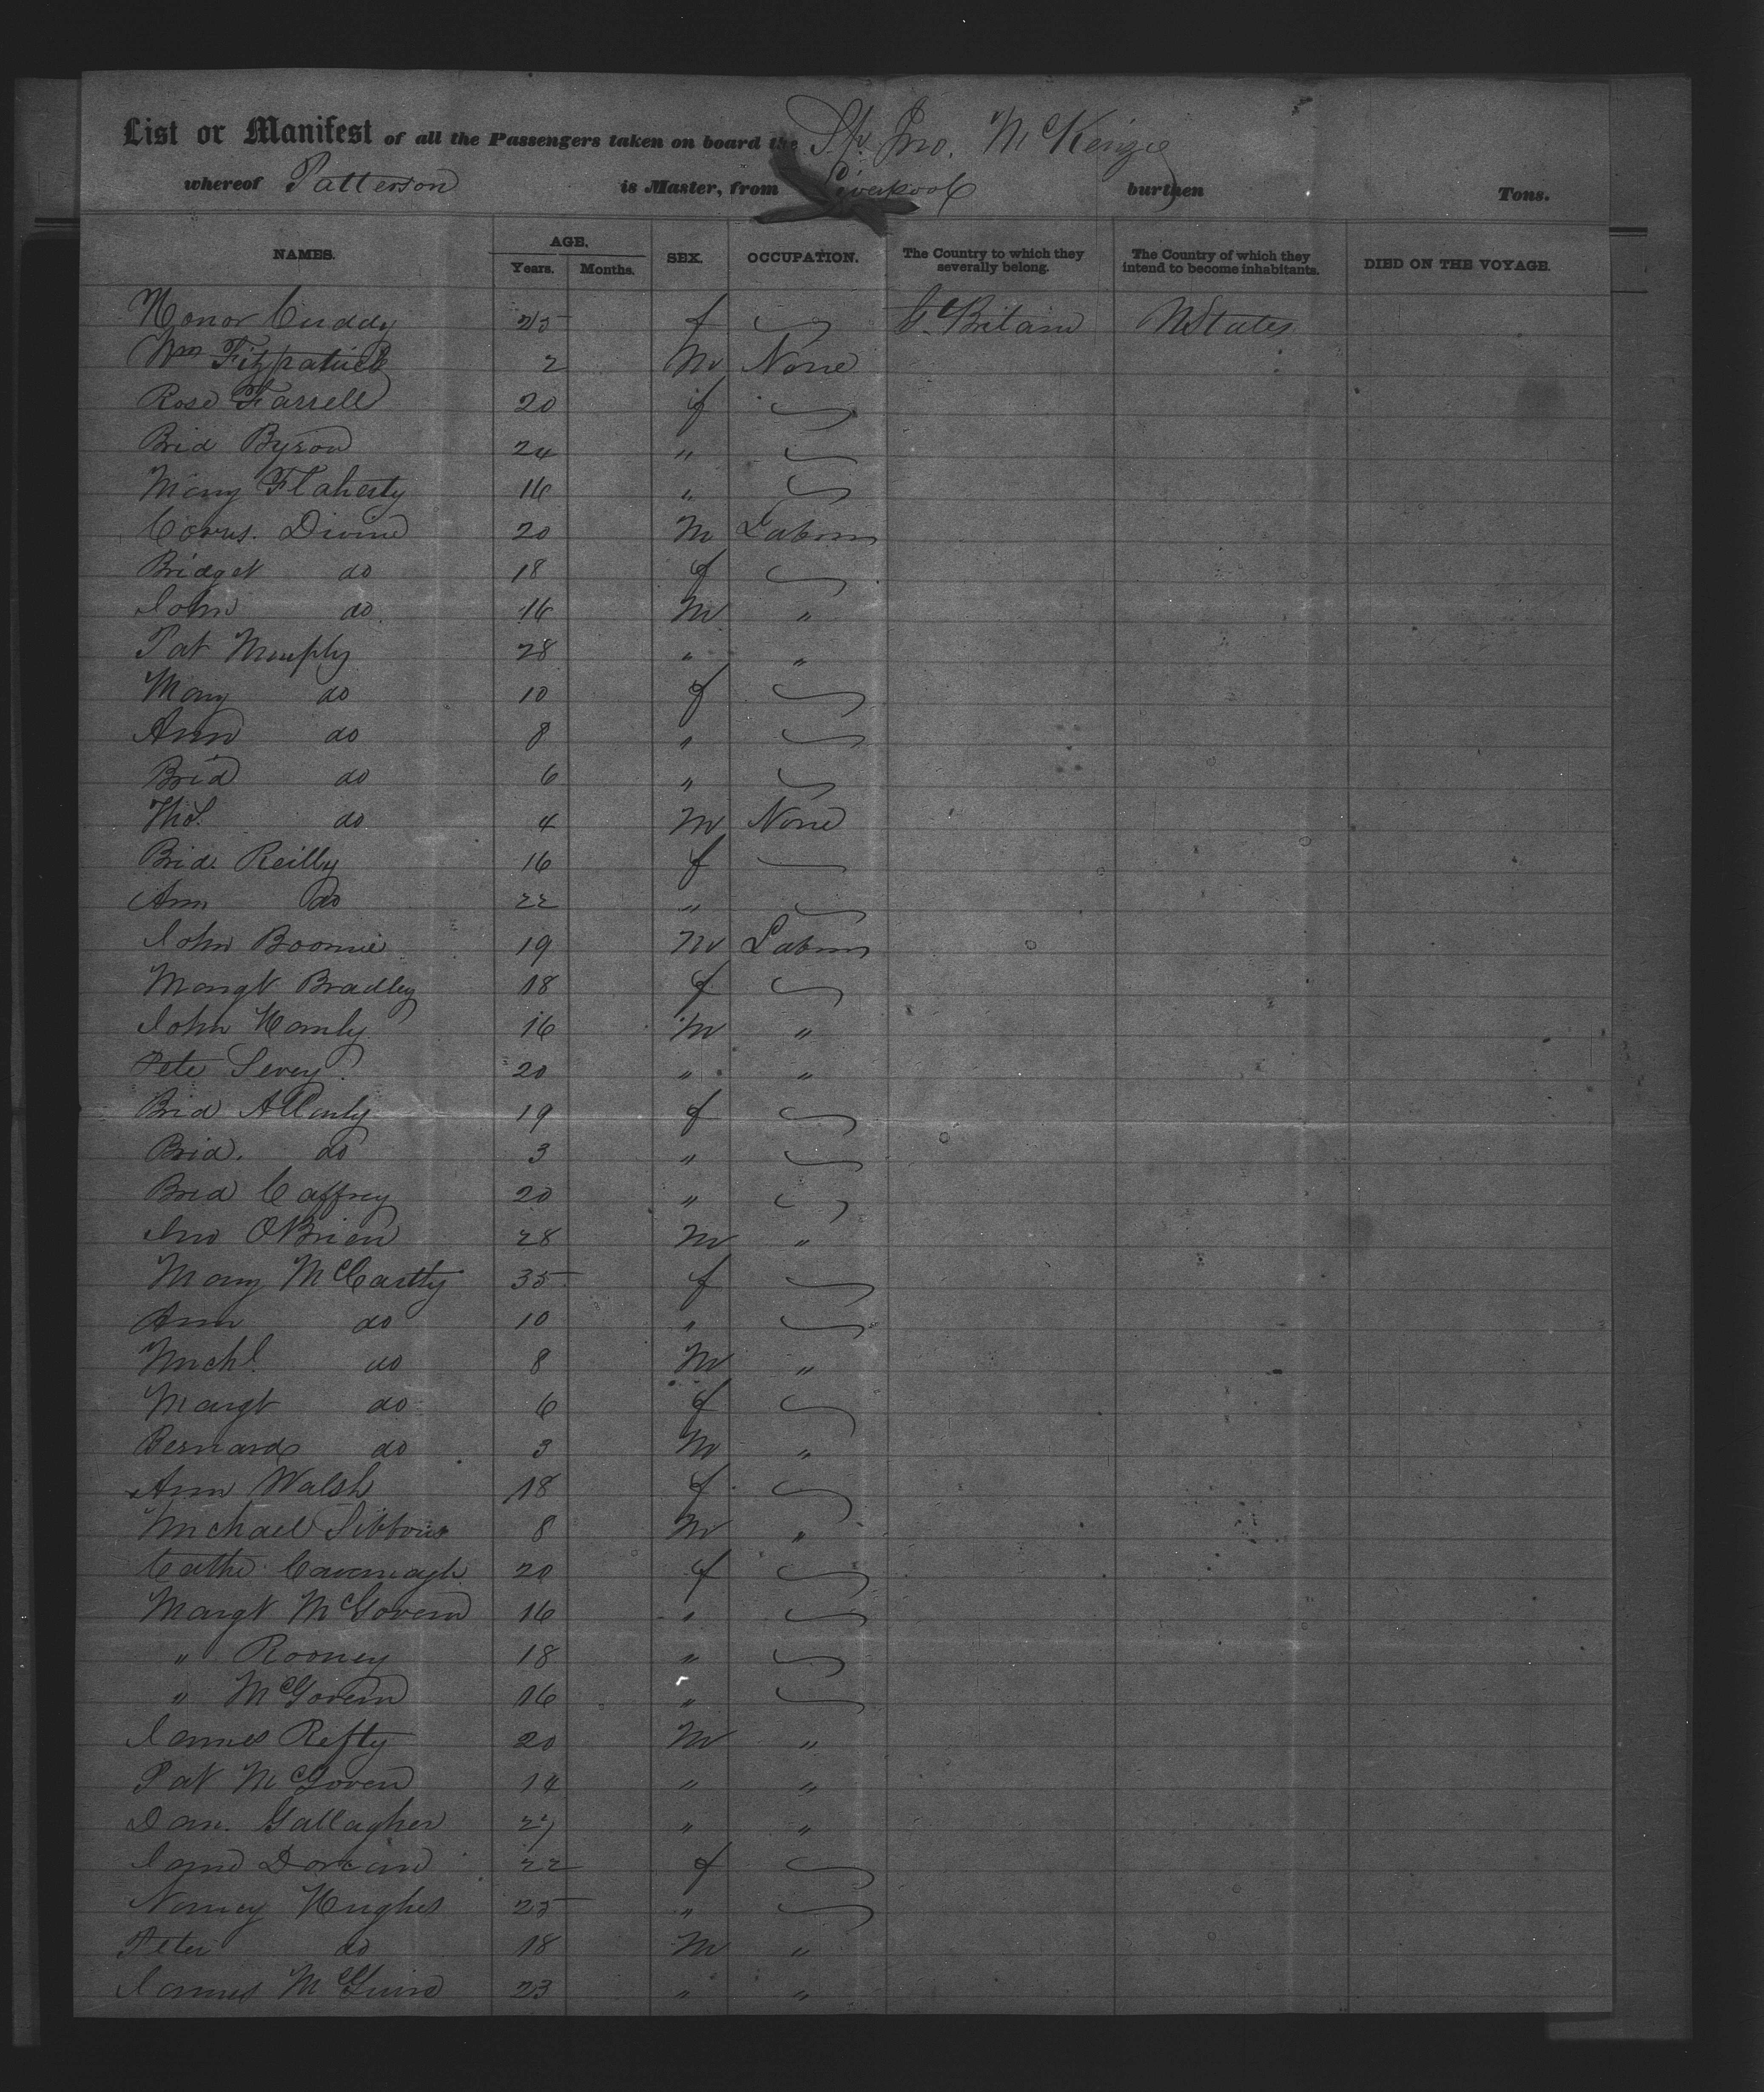 List or Manifest of all the Passengers taken on board the Sp. Jno. McKenzie
whereof Patterson is Master, from Liverpool burthen Tons.
NAMES. AGE. SEX. OCCUPATION. The Country to which they severally belong. The Country of which they intend to become inhabitants. DIED ON THE VOYAGE.
Years. Months.
Honor Cuddy 25 f G. Britain UStates
Wm Fitzpatrick 2 M None
Rose Farrell 20 f
Brid Byron 24 "
Mary Flaherty 16 "
Corns. Divine 20 M Labour
Bridget do 18 f
John do 16 M "
Pat Murphy 28 " "
Mary do 10 f
Ann do 8 "
Brid do 6 "
Thos. do 4 M None
Brid. Reilly 16 f
Ann do 22 "
John Boomie 19 M Labour
Margt Bradley 18 f
John Hanly 16 M "
Pete 20 " "
Brid 19 f
Brid. do 3 "
Brid Caffrey 20 "
Jno OBrien 28 M "
Mary McCarthy 35 f
Ann do 10 "
Michl. do 8 M "
Margt do 6 f
Bernard do 3 M "
Ann Walsh 18 f
Michael 8 M "
Cathe Cavanagh 20 f
Margt McGovern 16 "
" Rooney 18 "
" McGovern 16 "
James Refty 20 M "
Pat McGoven 14 " "
Dan. Gallagher 27 " "
Jane 22 f
Nancy Hughes 25 "
Peter do 18 M "
James McGuire 23 " "